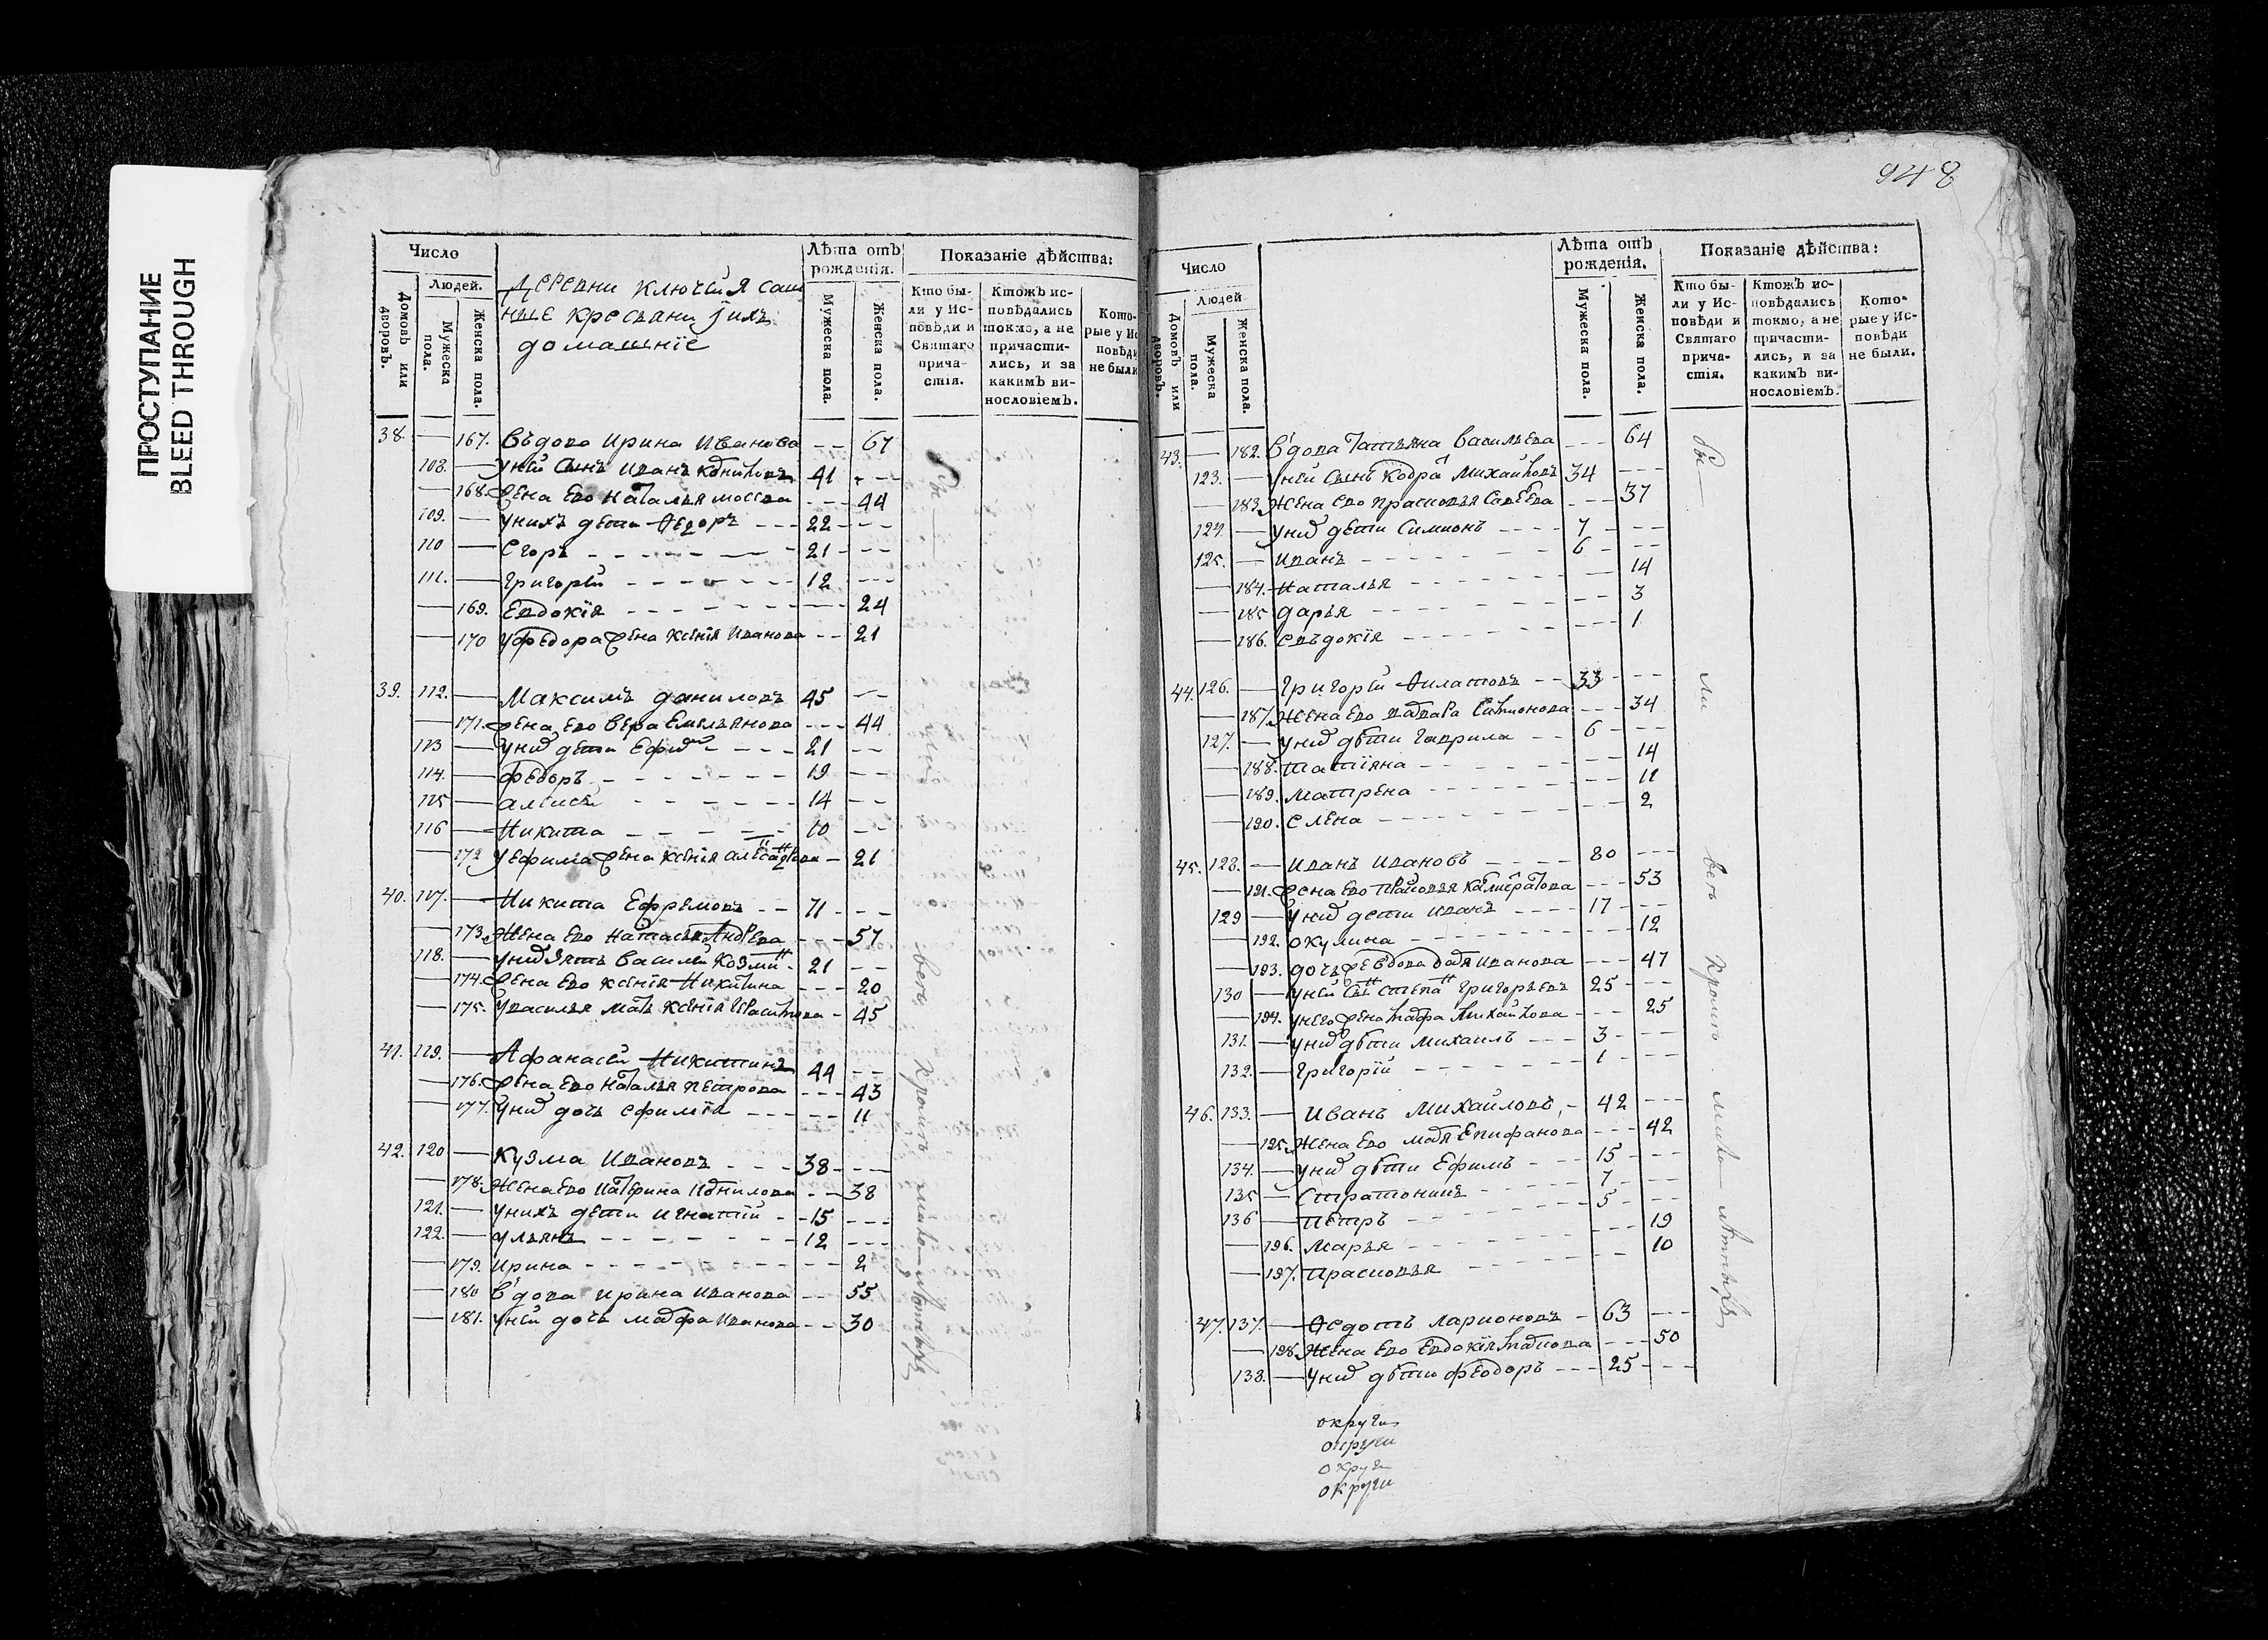 ПРОСТУПАНИЕ
BLEED THROUGH
948
Число
Людей.
Домовъ или дворовъ.
Мужеска пола.
Женска пола.
деревни ключей ясаш
ные кресьяни јихъ
домашніе
Лѣта отъ рожденія.
Мужеска пола.
Женска пола.
Показаніе дѣйства:
Кто бы-
ли у Ис-
повѣди и
Святаго
прича-
стія.
Ктожъ ис-
повѣдались
токмо, а не
причасти-
лись, и за
какимъ ви-
нословіемъ.
Кото-
рые у Ис
повѣди
не были
38. — 167. Въдова Ирина Иванова — — 67
108. — уней сынъ Иванъ 41 — —
168. жена ево Наталья — — 44
109. — унихъ дети Федоръ — — 22 — —
110 — Егоръ — — 21 — —
111. — Григорей — — 12 — —
— 169. Евдокія — — 24
— 170 уФедора жена Ксенія Иванова — — 21
39. 112. — Максимъ Даниловъ 45 — —
— 171. жена ево Вера Емельянова — — 44
113 — уних дети Ефим — — 21 — —
114. — Федоръ — — 19 — —
115 — алексей — — 14 — —
116 — Никита — — 10 — —
— 172 уЕфима жена Ксенія — 21
40. 117. — Никита Ефремовъ — — 71 — —
— 173. Жена ево Наталья Андрева — — 57
118. — уних зять Василей Козми — 21 — —
— 174. жена ево Ксенія Никитина — — 20
— 175. уВасилья мать Ксенія — 45
41. 119. — Афанасей Никитинъ 44 — —
— 176. жена ево Наталья Петрова — — 43
— 177. уних дочь Ефимія — — 11
42. 120 — Кузма Ивановъ — — 38 — —
— 178. Жена ево Катерина — — 38
121. — унихъ дети Игнатій — — 15 — —
122. — Ульянъ — — 12 — —
— 179. Ирина — — 2
— 180 Вдова Ирина Иванова — — 55
— 181. уней дочь Марфа Иванова — — 30
бы — ли
всѣ Кромѣ мало — летныхъ
Число
Людей
Домовъ или дворовъ.
Мужеска пола.
Женска пола.
Лѣта отъ рожденія.
Мужеска пола.
Женска пола.
Показаніе дѣйства:
Кто бы-
ли у Ис-
повѣди и
Святаго
прича-
стія.
Ктожъ ис-
повѣдались
токмо, а не
причасти-
лись, и за
какимъ ви-
нословіемъ.
Кото-
рые у Ис-
повѣди
не были.
43. — 182. Вдова Татьяна Васильева — — 64
123. — уней сынъ Кодрат Михайловъ 34 — —
— 183. Жена ево Прасковья Савеева — — 37
124. — уних дети Симионъ — — 7 — —
125. — Иванъ — — 6 — —
— 184. Наталья — — 14
— 185 Дарья — — 3
— 186. Евъдокія — — 1
44. 126. — Григорей Филатовъ — — 33 — —
— 187. Жена ево Варвара Симионова — — 34
127. — уних дѣти Гаврила — — 6 — —
— 188. Татіяна — — 14
— 189. Матрена — — 11
— 190. Елена — — 2
45. 128. — Иванъ Ивановъ — — 80 — —
— 191. жена ево — — 53
129 — уних дети Иванъ — — 17 — —
— 192. Окулина — — 12
— 193. дочь Иванова — — 47
130 — уней Степан Григорьевъ 25 — —
— 194. унего жена Марфа Михайлова — — 25
131. — уних дѣти Михаилъ — — 3 — —
132. — Григорій — — 1 — —
46. 133. — Иванъ Михайловъ — 42 — —
— 195. Жена ево Марья Епифанова — — 42
134. — уних дѣти Ефимъ — 15 — —
135 — Стратоникъ — — 7 — —
136 — Петръ — — 5 — —
— 196. Марья — — 19
— 197. Прасковья — — 10
47. 137. — Федотъ Ларионовъ — 63 — —
— 198. Жена ево Евдокія Маркова — — 50
138. — уних дѣти Феодоръ — — 25 — —
бы — ли
всѣ Кромѣ мало — летныхъ
округи
округи
округи
округи